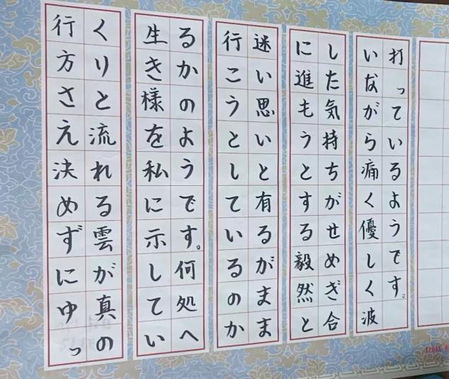 行方さえ決めずにゆっ
くりと流れる雲が真の
生き様を私に示してい
るかのようです。何処へ
行こうとしているのか
迷い思いと有るがまま
に進もうとする毅然と
した気持ちがせめぎ合
いながら痛く優しく波
打っているようです。